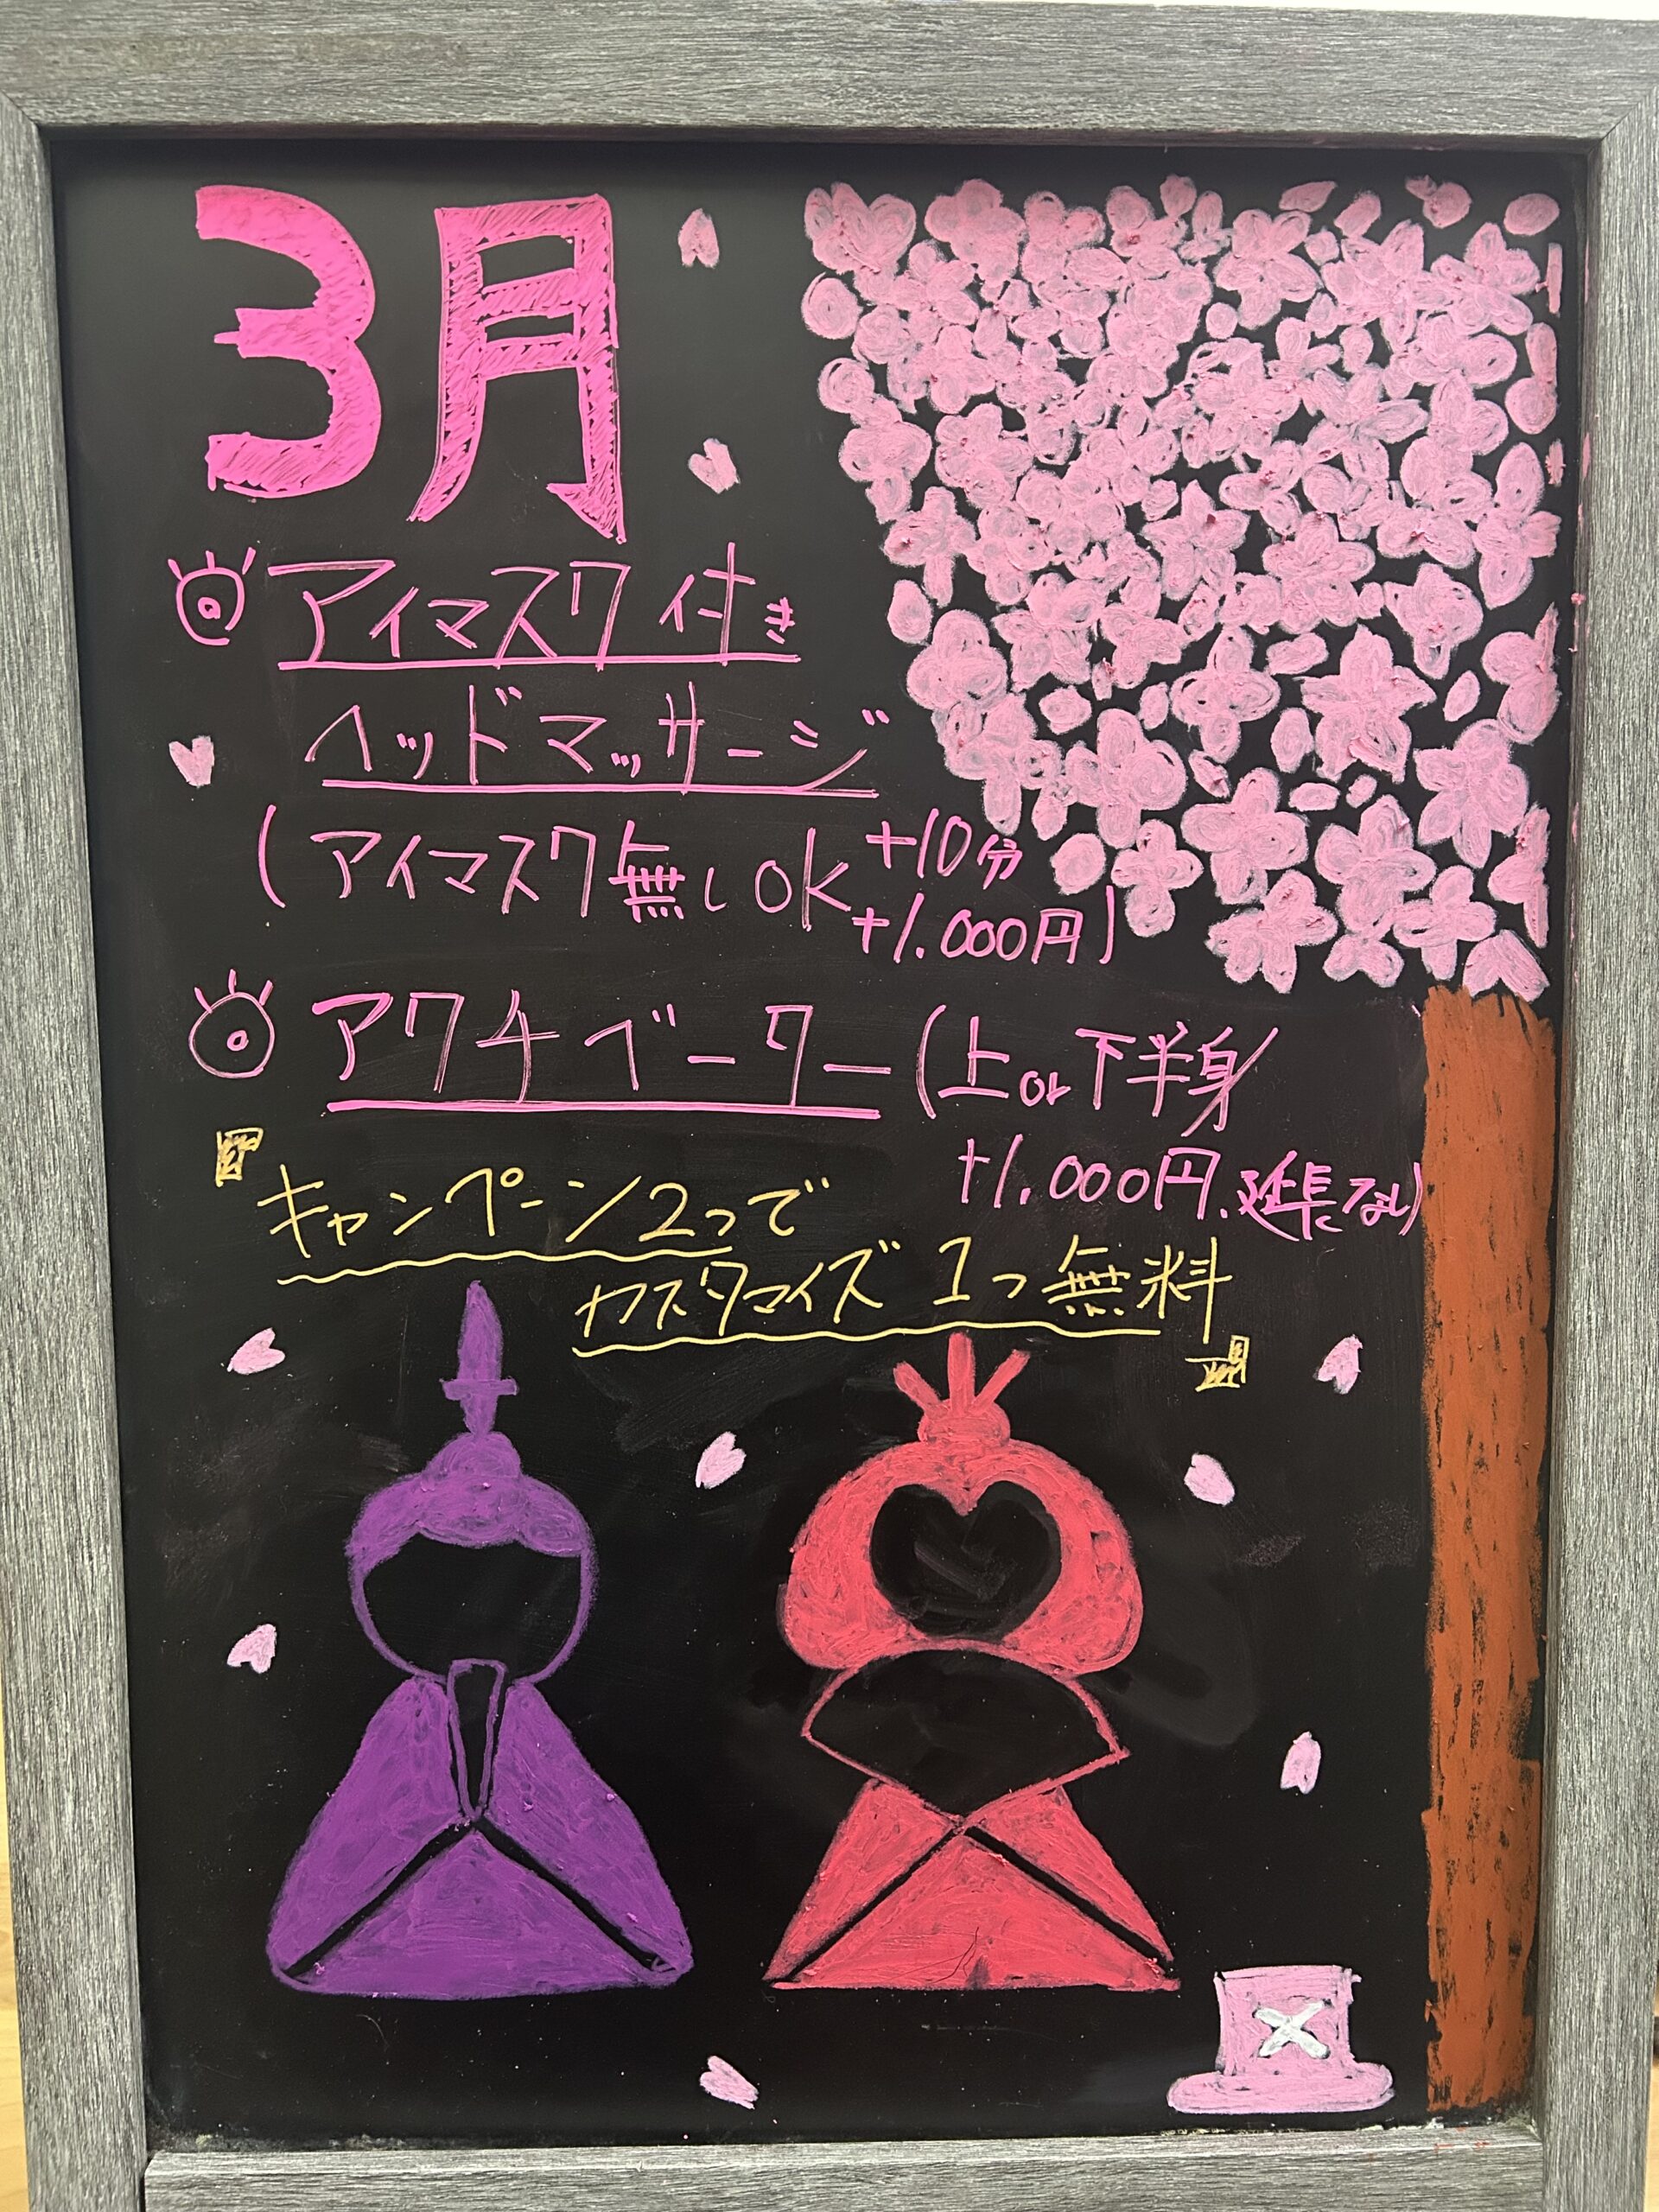 3月
アイマスク付き
ヘッドマッサージ
(アイマスク無しOK +10分
+1.000円)
アクチベーター(上or下半身
+1.000円.延長なし)
『キャンペーン2つで
カスタマイズ1つ無料』